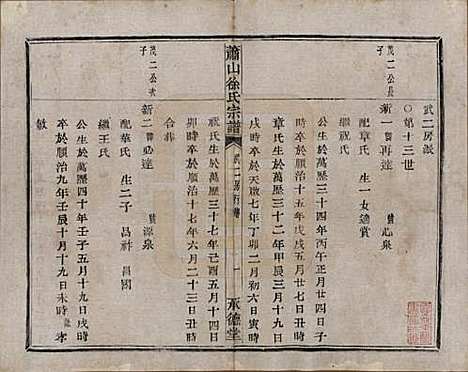 武二房派
○第十三世
茂二公長子
新一 諱再達 號心泉
配章氏 生一女適賞
繼祝氏
公生於萬歷三十四年丙午正月廿四日戌
時卒於順治十五年戊戌五月廿七日丑時
章氏生於萬歷三十二年甲辰三月十九日
戌時卒於天啟七年丁卯二月初六日寅時
蕭山徐氏宗譜
一
承德堂
祝氏生於萬歷三十七年己酉五月十四日
卯時卒於順治十七年六月二十三日丑時
合葬
茂二公次子
新二 諱必達 號源泉
配華氏 生二子 昌祚 昌國
繼王氏
公生於萬歷四十年壬子五月十九日戌時
卒於順治九年壬辰十月十九日未時 孝
敏